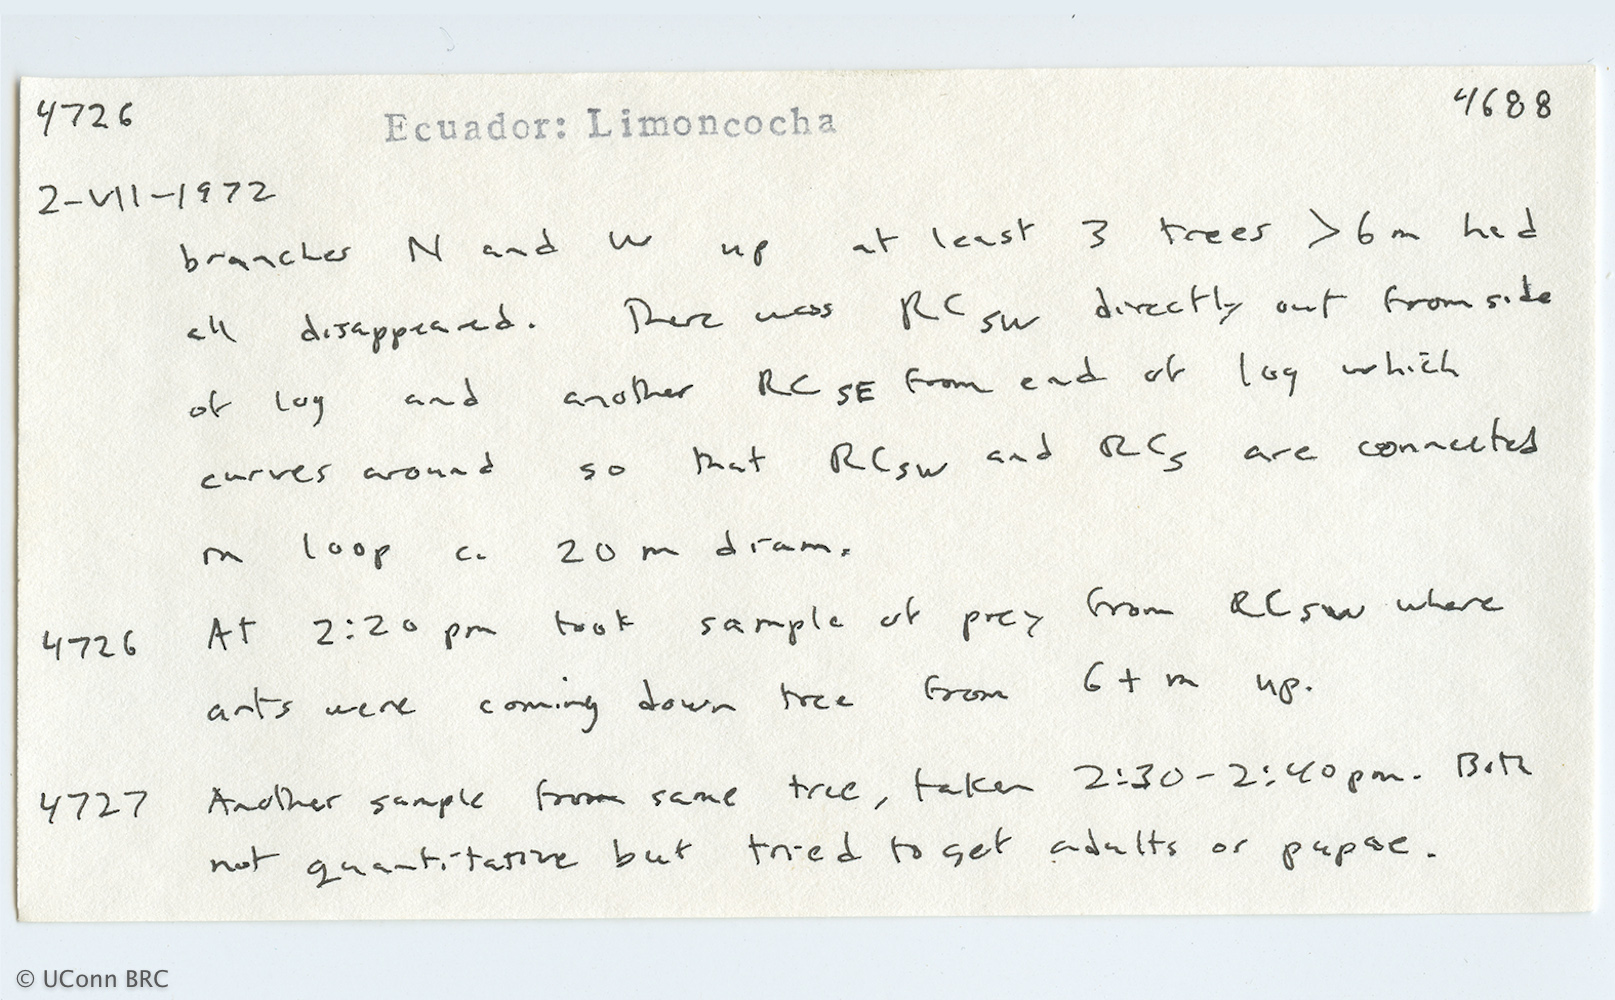 4726 Ecuador: Limoncocha 4688
2-VII-1972
branches N and W up at least 3 trees >6m had
all disappeared. There was RC SW directly out from side
of log and another RC SE from end of log which
curves around so that RC SW and RC S are connected
in loop c. 20 m diam.
4726 At 2:20 pm took sample of prey from RC SW where
ants were coming down tree from 6+ m up.
4727 Another sample from same tree, taken 2:30-2:40pm. Both
not quantitative but tried to get adults or pupae.
© UConn BRC